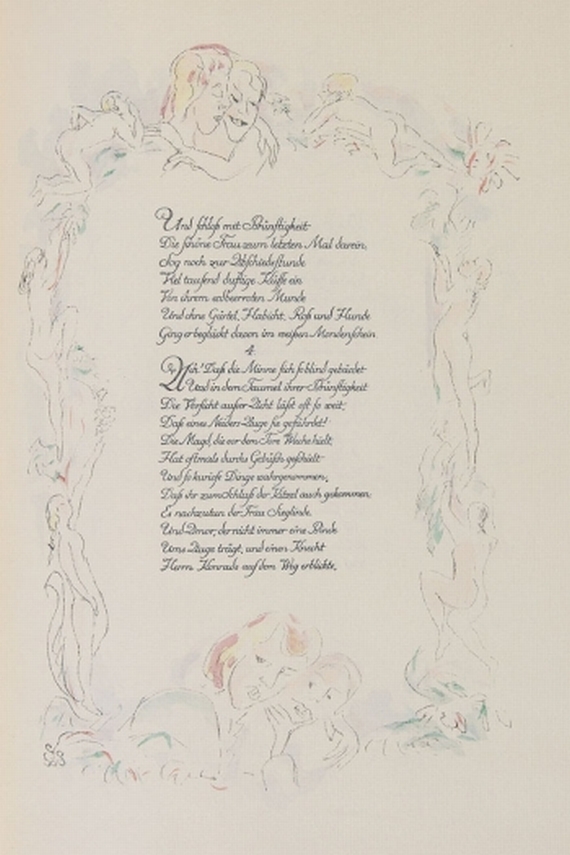 Und schloß mit Brünstigkeit
Die schöne Frau zum letzten Mal darein,
Sog noch zur Abschiedsstunde
Viel tausend duftige Küsse ein
Von ihrem erdbeerroten Munde
Und ohne Gürtel, Habicht, Roß und Hunde
Ging er beglückt davon im weißen Mondenschein.
4.
Ach! Daß die Minne sich so blind gebärdet
Und in dem Taumel ihrer Brünstigkeit
Die Vorsicht außer Acht läßt oft so weit,
Daß eines Neiders Auge sie gefährdet!
Die Magd, die vor dem Tore Wache hielt,
Hat oftmals durchs Gebüsch geschielt
Und so kuriose Dinge wahrgenommen,
Daß ihr zum Schluß der Kitzel auch gekommen,
Es nachzutun der Frau Sieglinde.
Und Amor, der nicht immer eine Binde
Ums Auge trägt, und einen Knecht
Herrn Konrads auf dem Weg erblickte,